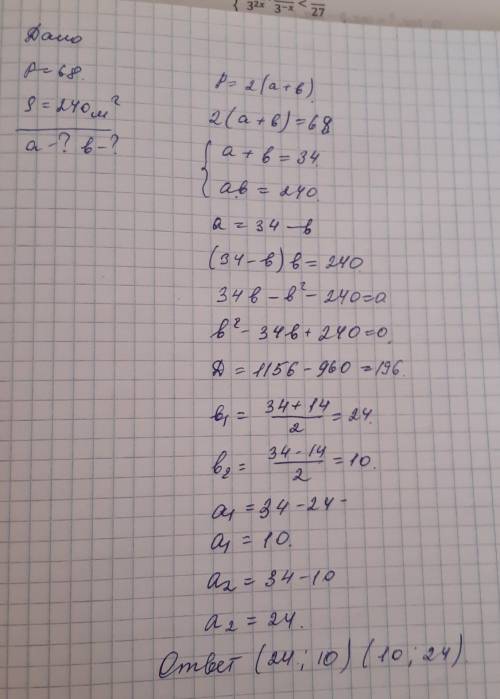 3^2x · 3^-x < 27
Дано
P = 68.
S = 240 м²
a - ? в - ?
P = 2(a+в)
2(a+в) = 68
{ a + в = 34
aв = 240.
a = 34 - в
(34-в)в = 240
34в - в² - 240 = 0
в² - 34в + 240 = 0.
Д = 1156 - 960 = 196.
в₁ = (34+14)/2 = 24.
в₂ = (34-14)/2 = 10.
a₁ = 34 - 24 -
a₁ = 10.
a₂ = 34 - 10
a₂ = 24.
Ответ (24; 10) (10; 24).